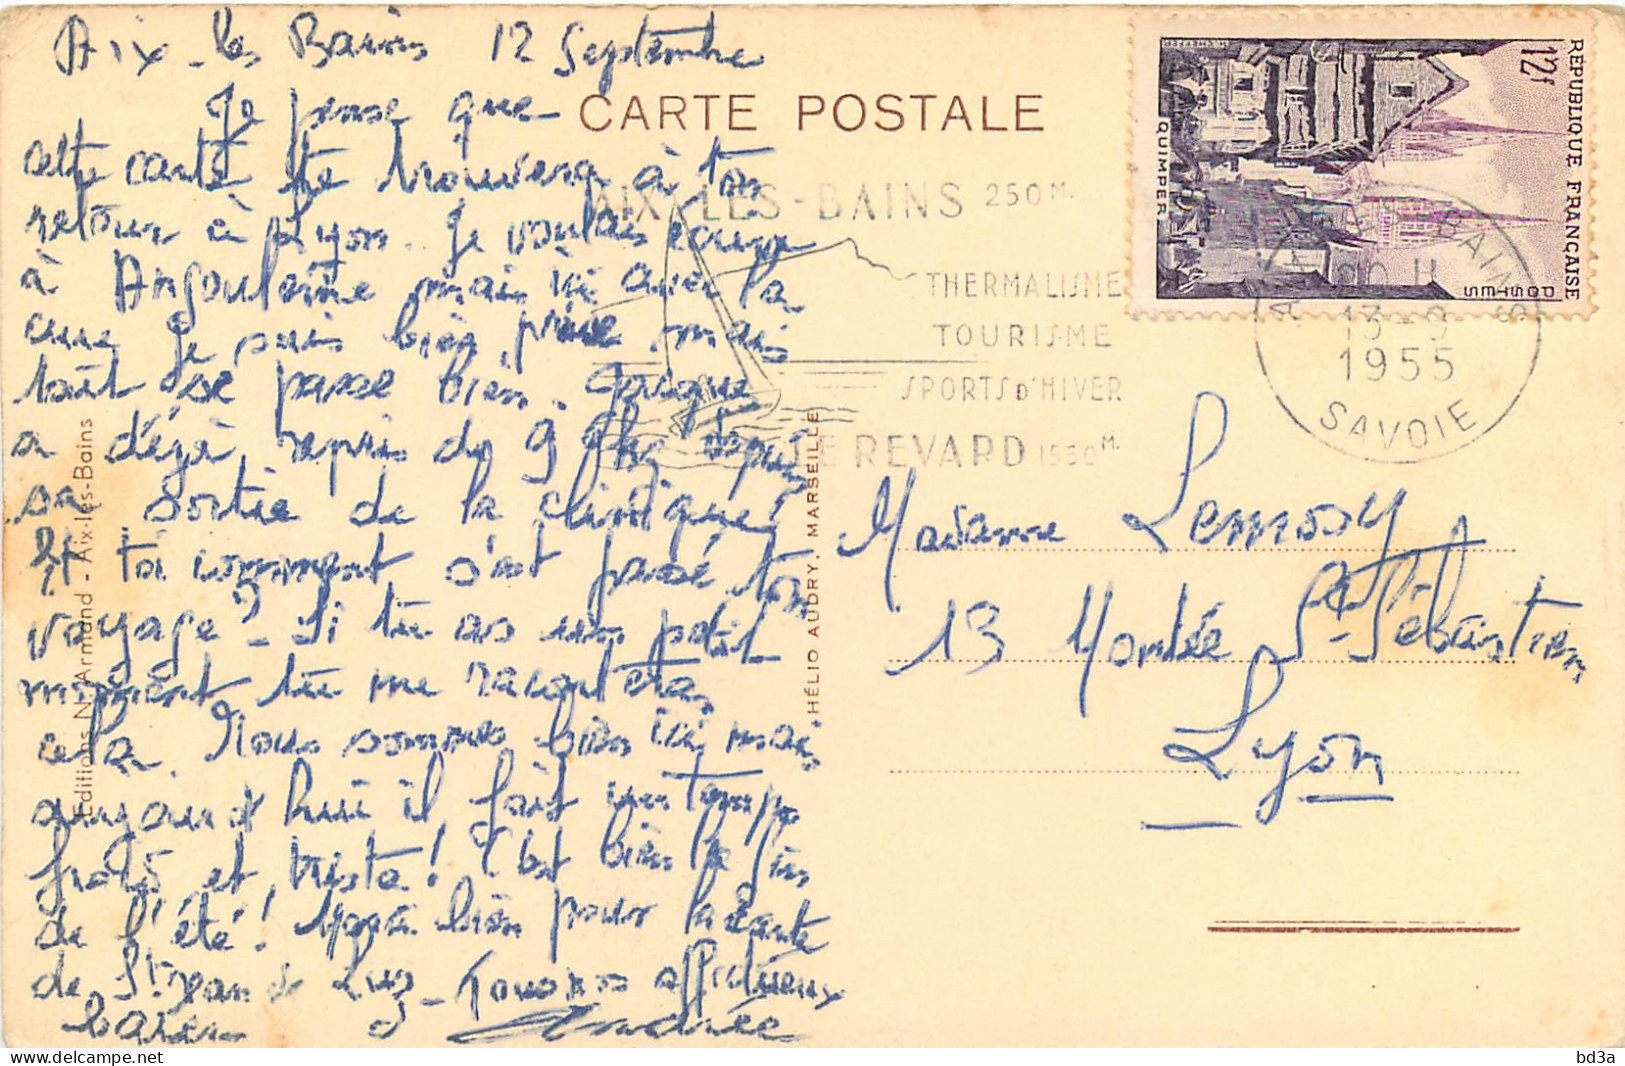 Aix-les Bains 12 Septembre
Je pense que
cette carte te trouvera à ton
retour à Lyon. Je voulais écrire
à Angoulême mais ici avec la
cure je suis bien prise mais
tout se passe bien. Jacques
a déjà repris du 9 depuis
sa sortie de la clinique,
Et toi comment s'est passé ton
voyage? - Si tu as un petit
moment tu me raconteras
cela. Nous sommes bien ici mais
aujourd'hui il fait un temps
froid et triste! C'est bien la fin
de l'été! Merci bien pour la carte
de St Jean de Luz - Tous nos affectueux
baisers Andrée
CARTE POSTALE
AIX-LES-BAINS 250 M.
THERMALISME
TOURISME
SPORTS D'HIVER
LE REVARD 1550 M.
RÉPUBLIQUE FRANÇAISE
12f
POSTES
QUIMPER
H. CHEFFER
AIX-LES-BAINS
20 H
13-9
1955
SAVOIE
Madame Lemosy
13 Montée St-Sébastien
Lyon
Editions N. Armand - Aix-les-Bains
HÉLIO AUDRY. MARSEILLE
bd3a